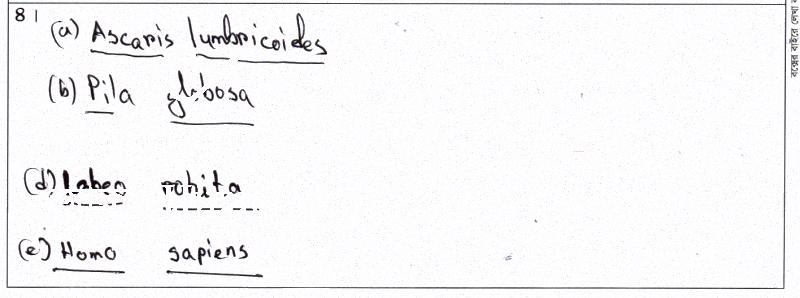 8।
(a) Ascaris lumbricoides
(b) Pila globosa
(d) Labeo rohita
(e) Homo sapiens